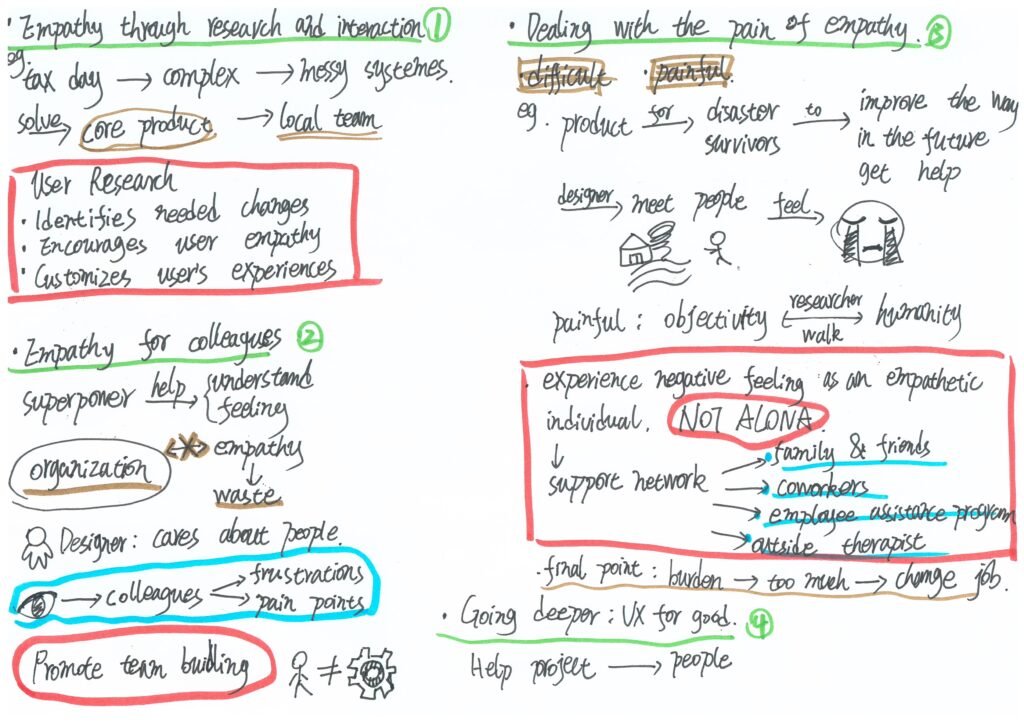 · Empathy through research and interaction ①
eg.
tax day → complex → messy systemes.
solve → core product → local team
User Research
· Identifies needed changes
· Encourages user empathy
· Customizes user's experiences
· Empathy for colleagues ②
superpower help → { understand
feeling
organization ↔ empathy
↓
waste
Designer: cares about people.
→ colleagues → frustrations
→ pain points
Promote team buidling
≠
· Dealing with the pain of empathy. ③
· difficult · painful.
eg. product for → disaster survivors to → improve the way
in the future
get help
designer → meet people feel →
painful : objectivity researcher walk ↔ humanity
· experience negative feeling as an empathetic
individual. NOT ALONA.
↓
support network → family & friends
→ coworkers
→ employee assistance program
→ outside therapist
· final point : burden → too much → change job.
· Going deeper : UX for good. ④
Help project → people